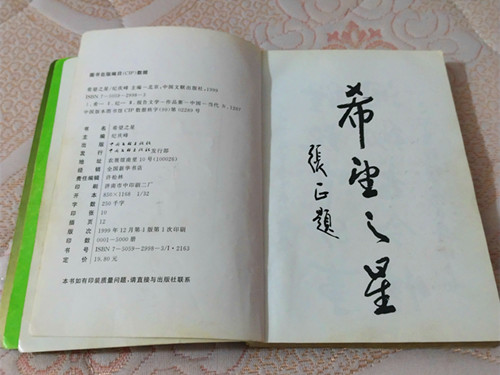 图书在版编目(CIP)数据
希望之星/纪庆峰 主编-北京:中国文联出版社,1998
ISBN 7-5059-2998-3
中国版本图书馆CIP数据核字(98)第02289号
书 名 希望之星
主 编
出 版 中国文联出版社
发 行 中国文联出版社发行部
地 址 农展馆南里10号(100026)
经 销 全国新华书店
责任编辑 许松林
印 刷 济南市中印刷二厂
开 本 850×1168 1/32
字 数 250千字
印 张 10
插 页 12
版 次 1998年12月第1次印刷
印 数 0001-5000册
书 号 ISBN 7-5059-2998-3/I·2163
定 价 16.80元
本书如有印装质量问题,请直接与出版社联系
希望之星
張正題